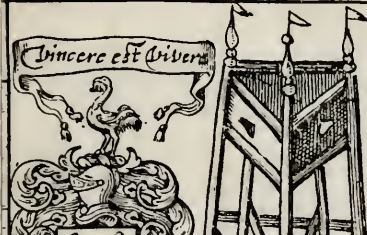 Vincere est Vivere